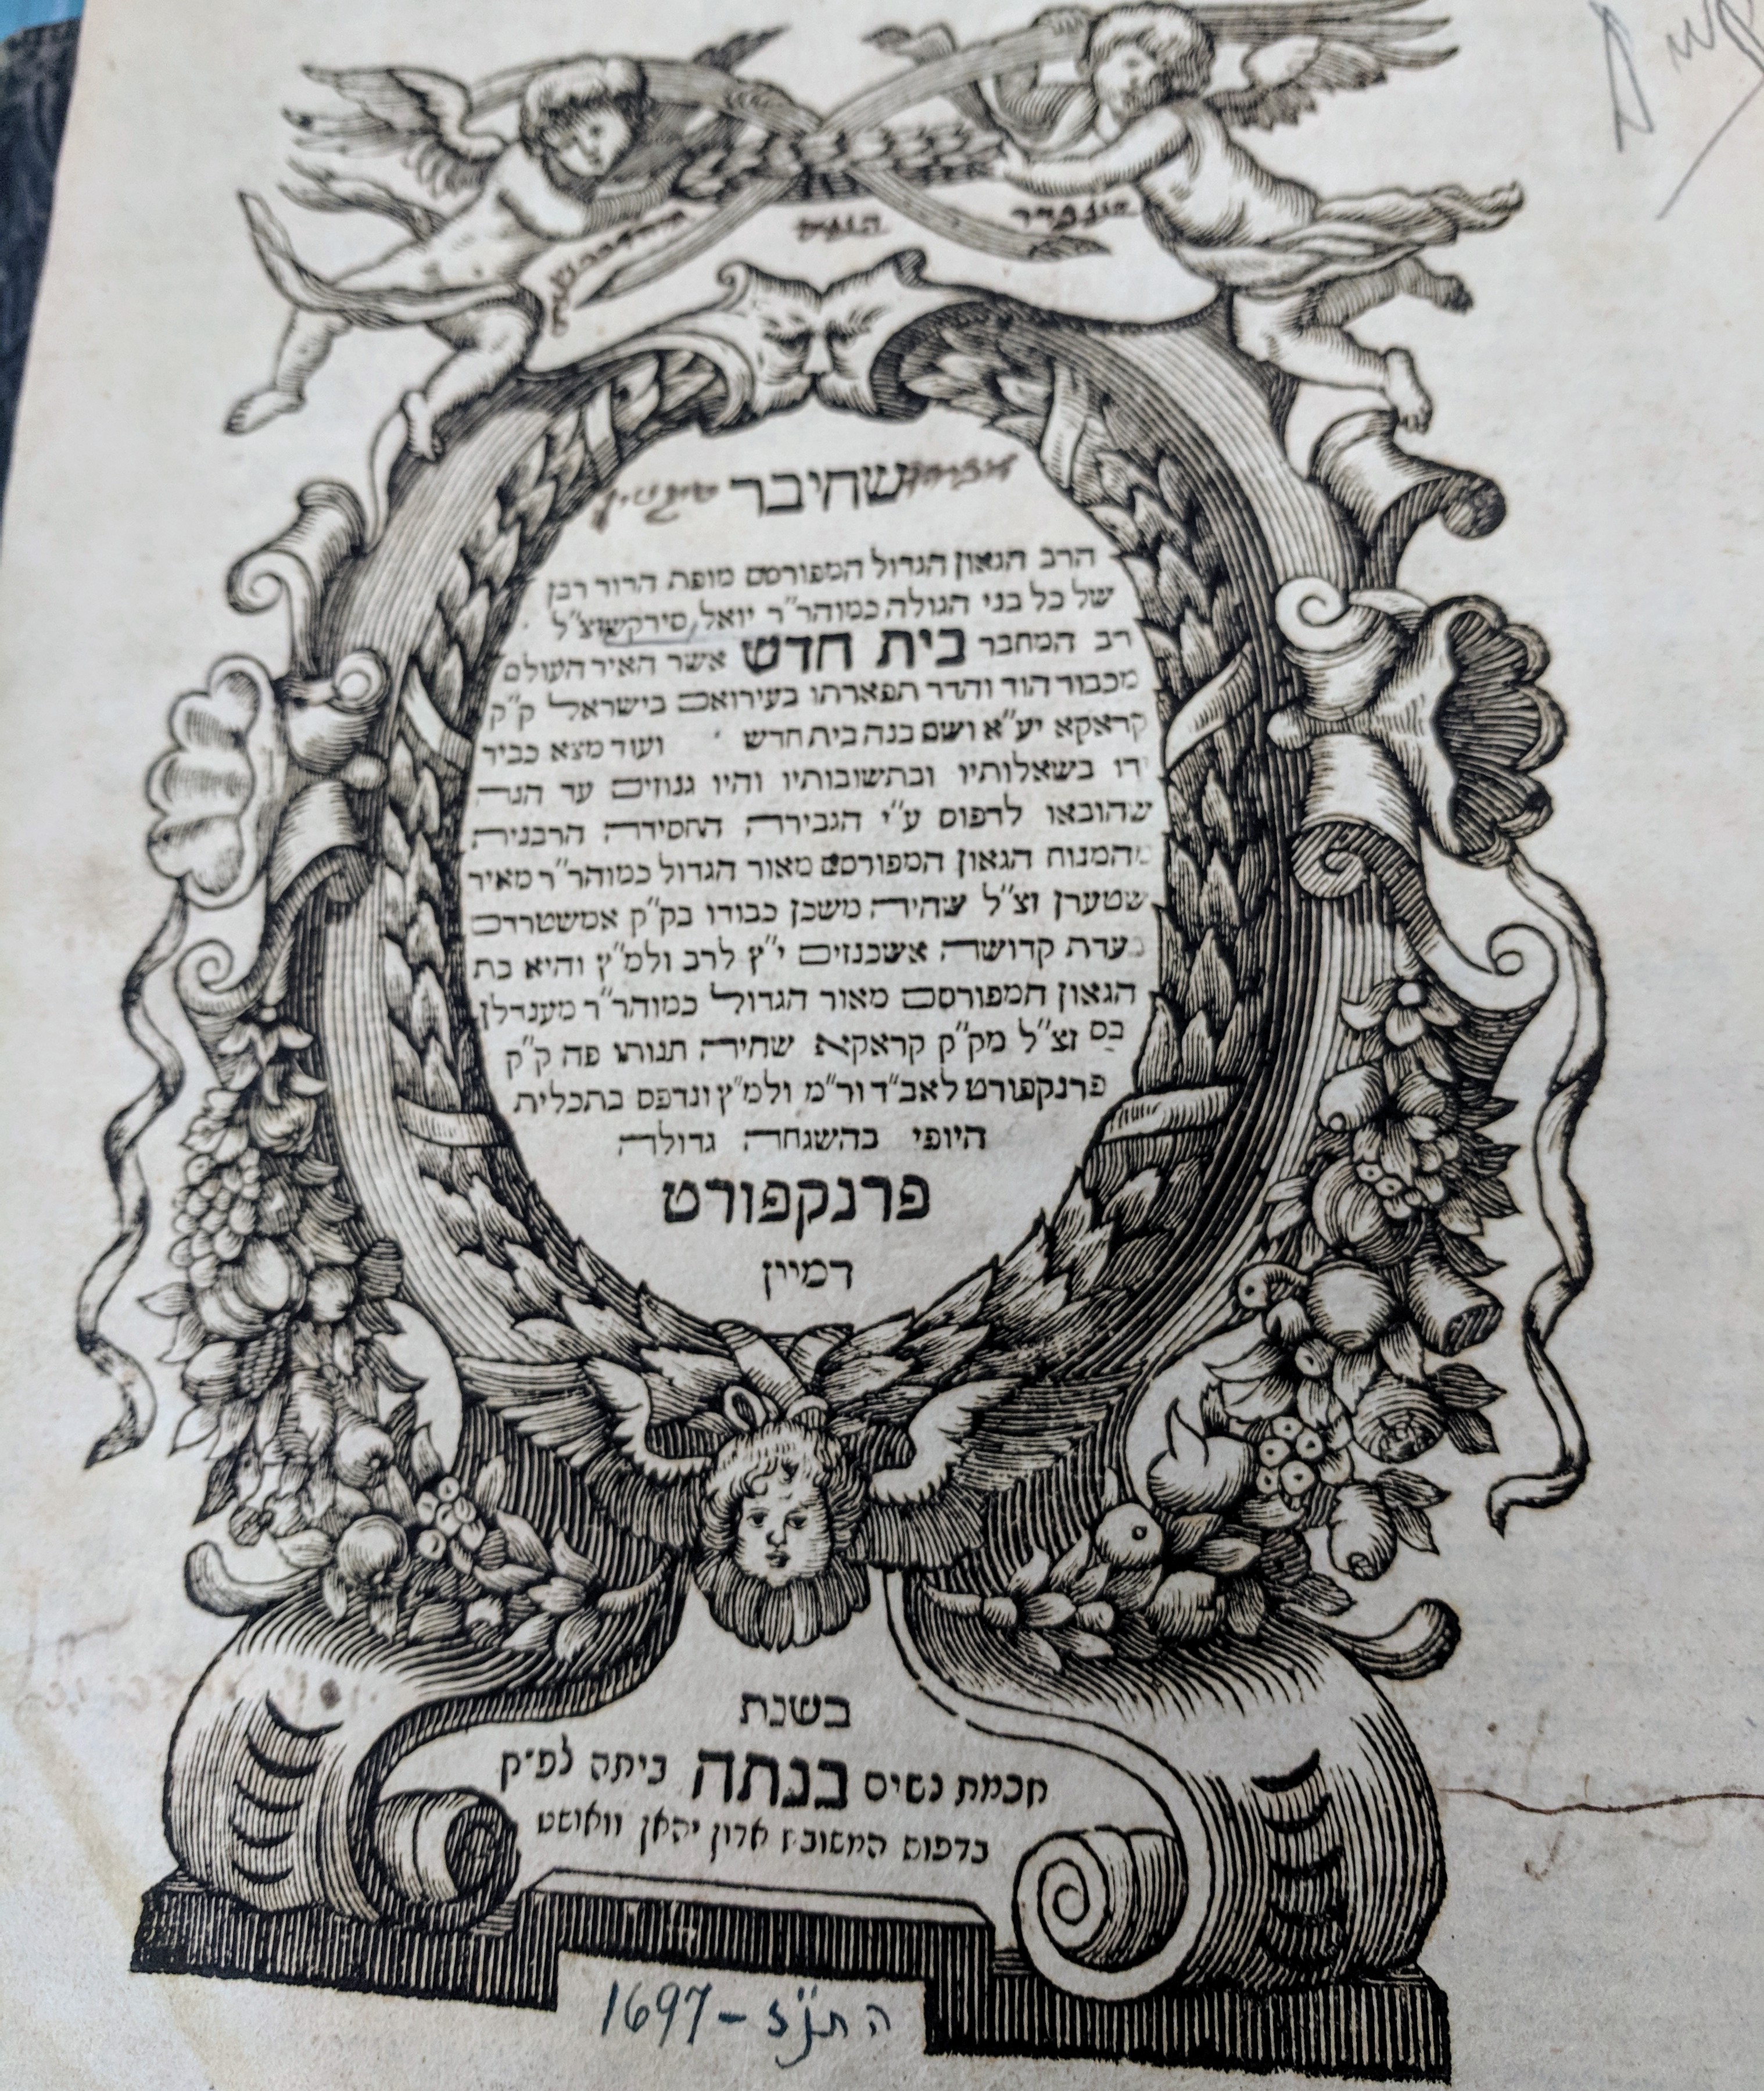 שחיבר
הרב הגאון הגדול המפורסם מופת הדור רבן
של כל בני הגולה כמוהר"ר יואל סירקש זצ"ל
רב המחבר בית חדש אשר האיר העולם
מכבוד הוד והדר תפארתו בעיר ואם בישראל ק"ק
קראקא יע"א ושם בנה בית חדש ועוד מצא כביר
ידו בשאלותיו ובתשובותיו והיו גנוזים עד הנה
שהובאו לדפוס ע"י הגבירה החסידה הרבנית
מהמנוח הגאון המפורסם מאור הגדול כמוהר"ר מאיר
שטערן זצ"ל שהיה משכן כבודו בק"ק אמשטרדם
בעדת קדושה אשכנזים י"ץ לרב ולמ"ץ והיא בת
הגאון המפורסם מאור הגדול כמוהר"ר מענדלן
בס זצ"ל מק"ק קראקא שחיה תנותו פה ק"ק
פרנקפורט לאב"ד ור"מ ולמ"ץ ונדפס בתכלית
היופי בהשגחה גדולה
פרנקפורט
דמיין
בשנת
חכמת נשים בנתה ביתה לפ"ק
בדפוס המשובח ארון יהאן וואושט
ה תנ"ז - 1697